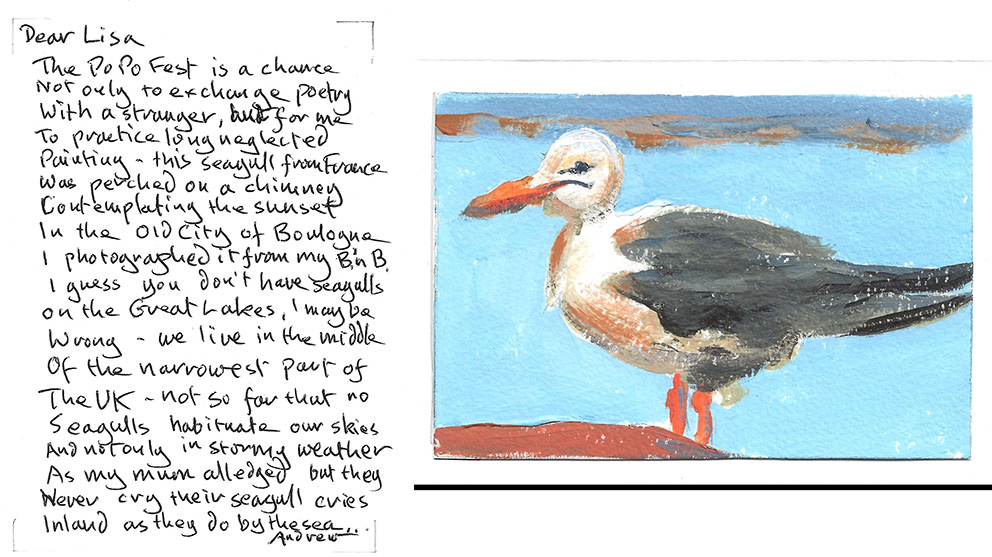 Dear Lisa
The PoPo Fest is a chance
Not only to exchange poetry
With a stranger, but for me
To practice long neglected
Painting - this seagull from France
Was perched on a chimney
Contemplating the sunset
In the Old City of Boulogne
I photographed it from my B'n B.
I guess you don't have seagulls
on the Great Lakes, I may be
Wrong - we live in the middle
Of the narrowest part of
The UK - not so far that no
Seagulls habituate our skies
And not only in stormy weather
As my mum alledged but they
Never cry their seagull cries
Inland as they do by the sea...
Andrew